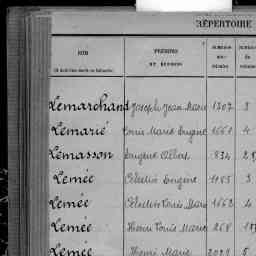 RÉPERTOIRE
NOM
PRÉNOMS
Lemarchand Joseph Jean Marie 1307 3
Lemarié Louis Marie Eugène 1661 4
Lemasson Eugène Albert 834 2
Lemée Célestin Eugène 1185 3
Lemée Célestin Louis Marie 1662 4
Lemée Henri Louis Marie 268
Lemée Henri Marie